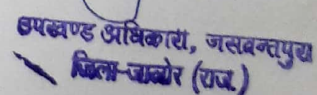 उपखण्ड अधिकारी, जसवन्तपुरा
जिला-जालोर (राज.)